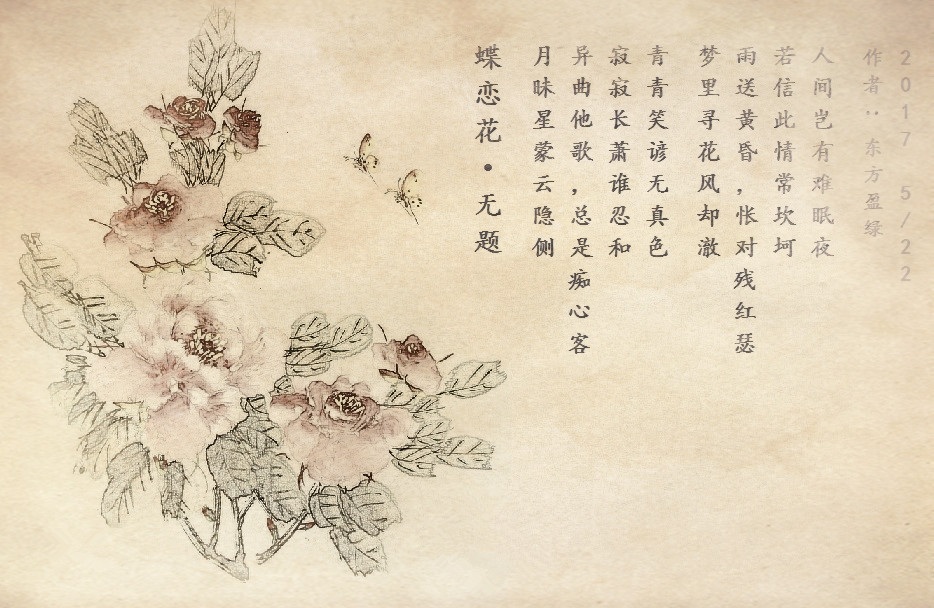 蝶恋花·无题
月昧星蒙云隐侧
异曲他歌,总是痴心客
寂寂长萧谁忍和
青青笑谚无真色
梦里寻花风却澈
雨送黄昏,怅对残红瑟
若信此情常坎坷
人间岂有难眠夜
作者:东方盈绿
2017 5/22